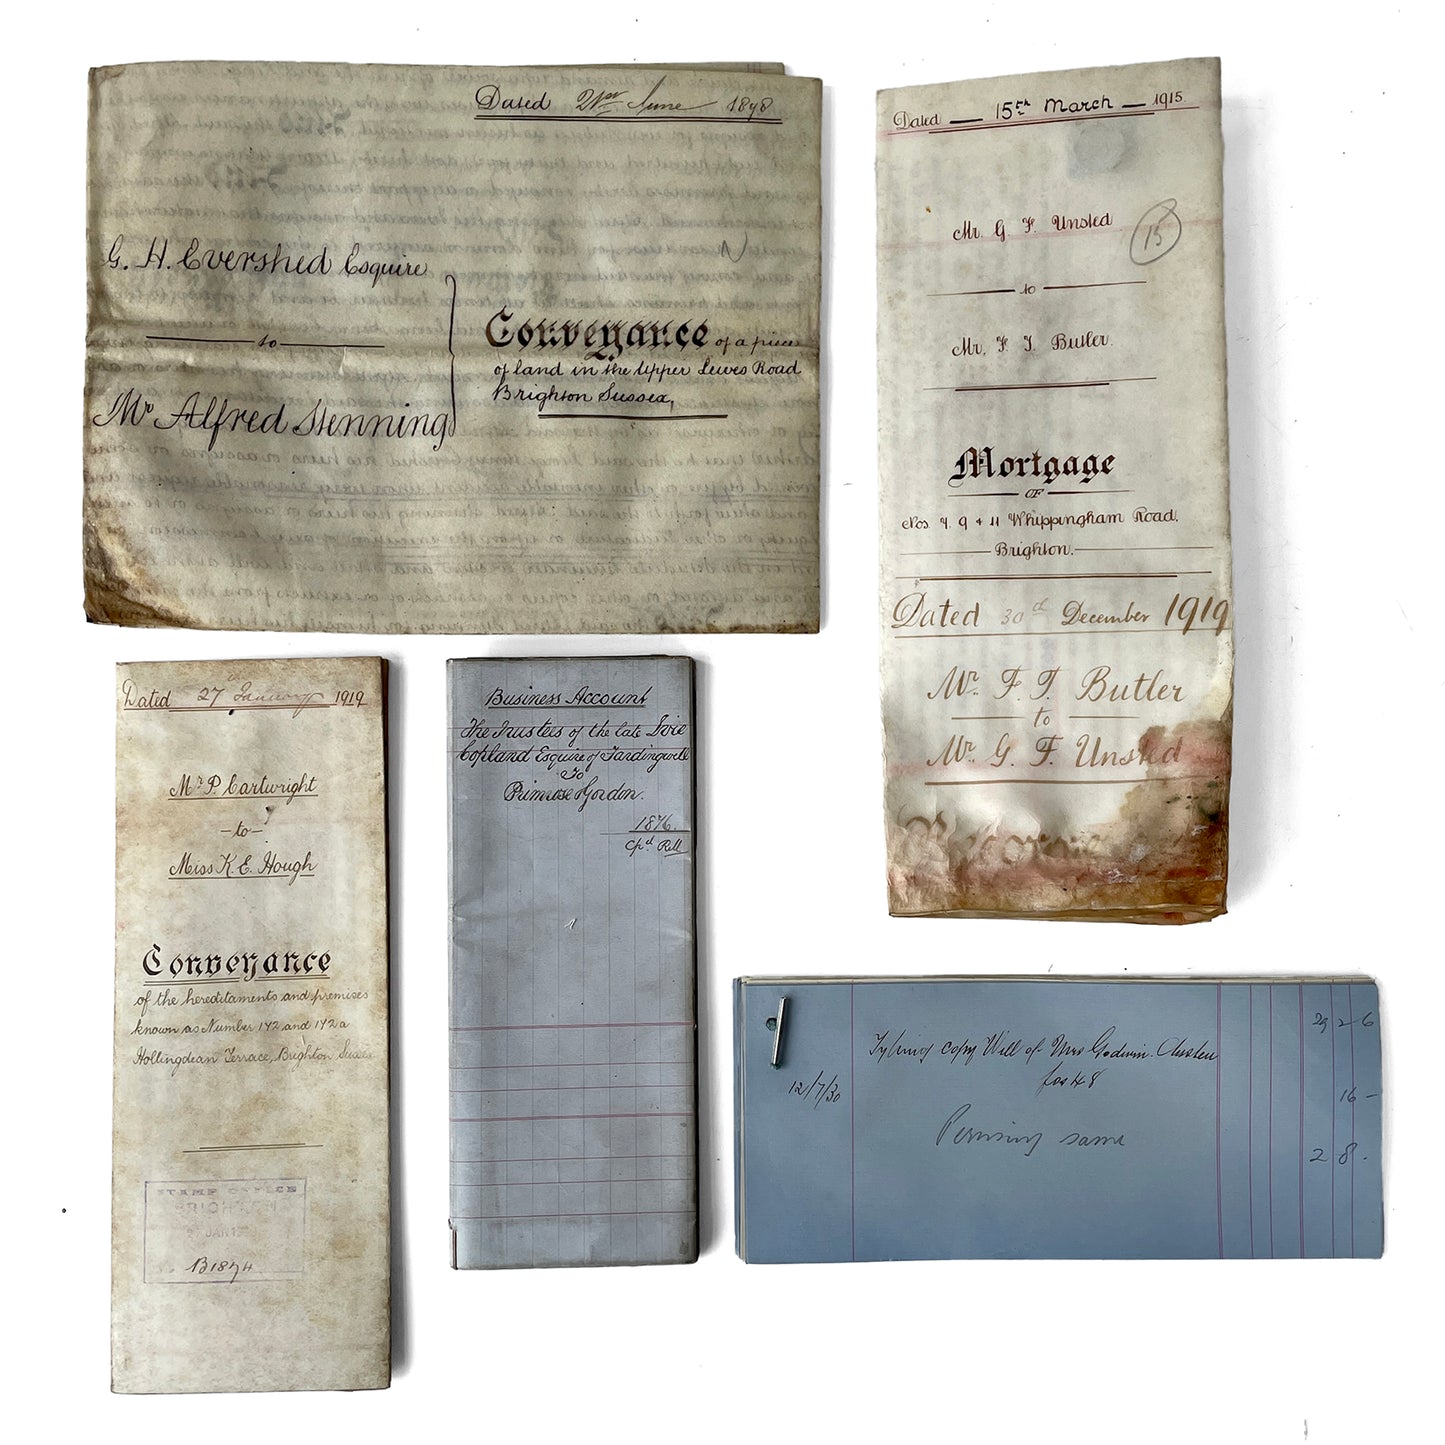 Dated 21st June 1898
G. H. Evershed Esquire
to
Mr Alfred Henning
Conveyance of a piece
of land in the Upper Lewes Road
Brighton Sussex,
Dated 15th March 1915
Mr. G. F. Unsted
15
to
Mr. F. T. Butler.
Mortgage
OF
Nos 7. 9 & 11 Whippingham Road.
Brighton.
Dated 30th December 1919
Mr. F. T. Butler
to
Mr. G. F. Unsted
Dated 27 January 1919
Mr P. Cartwright
to
Miss K. E. Hough
Conveyance
of the hereditaments and premises
known as Number 142 and 142a
Hollingdean Terrace, Brighton Sussex
STAMP OFFICE
BRIGHTON
27 JAN 19
B1874
Business Account
The Trustees of the late
Copland Esquire of
To
Primrose Gordon.
1876.
29 2 6
copy Will of Mrs Godwin-Austen
12/7/30
fos 48
16 -
Perusing same
2 8.